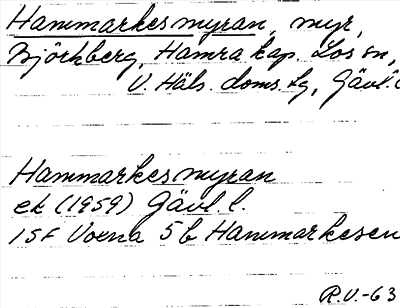 Hammarkesmyran, myr,
Björkberg, Hamra kap. Los sn,
V. Häls. doms.tg, Gävl.
Hammarkesmyran
ek (1959) Gävl. l.
15F Voxna 5b Hammarkesen
R.V.-63